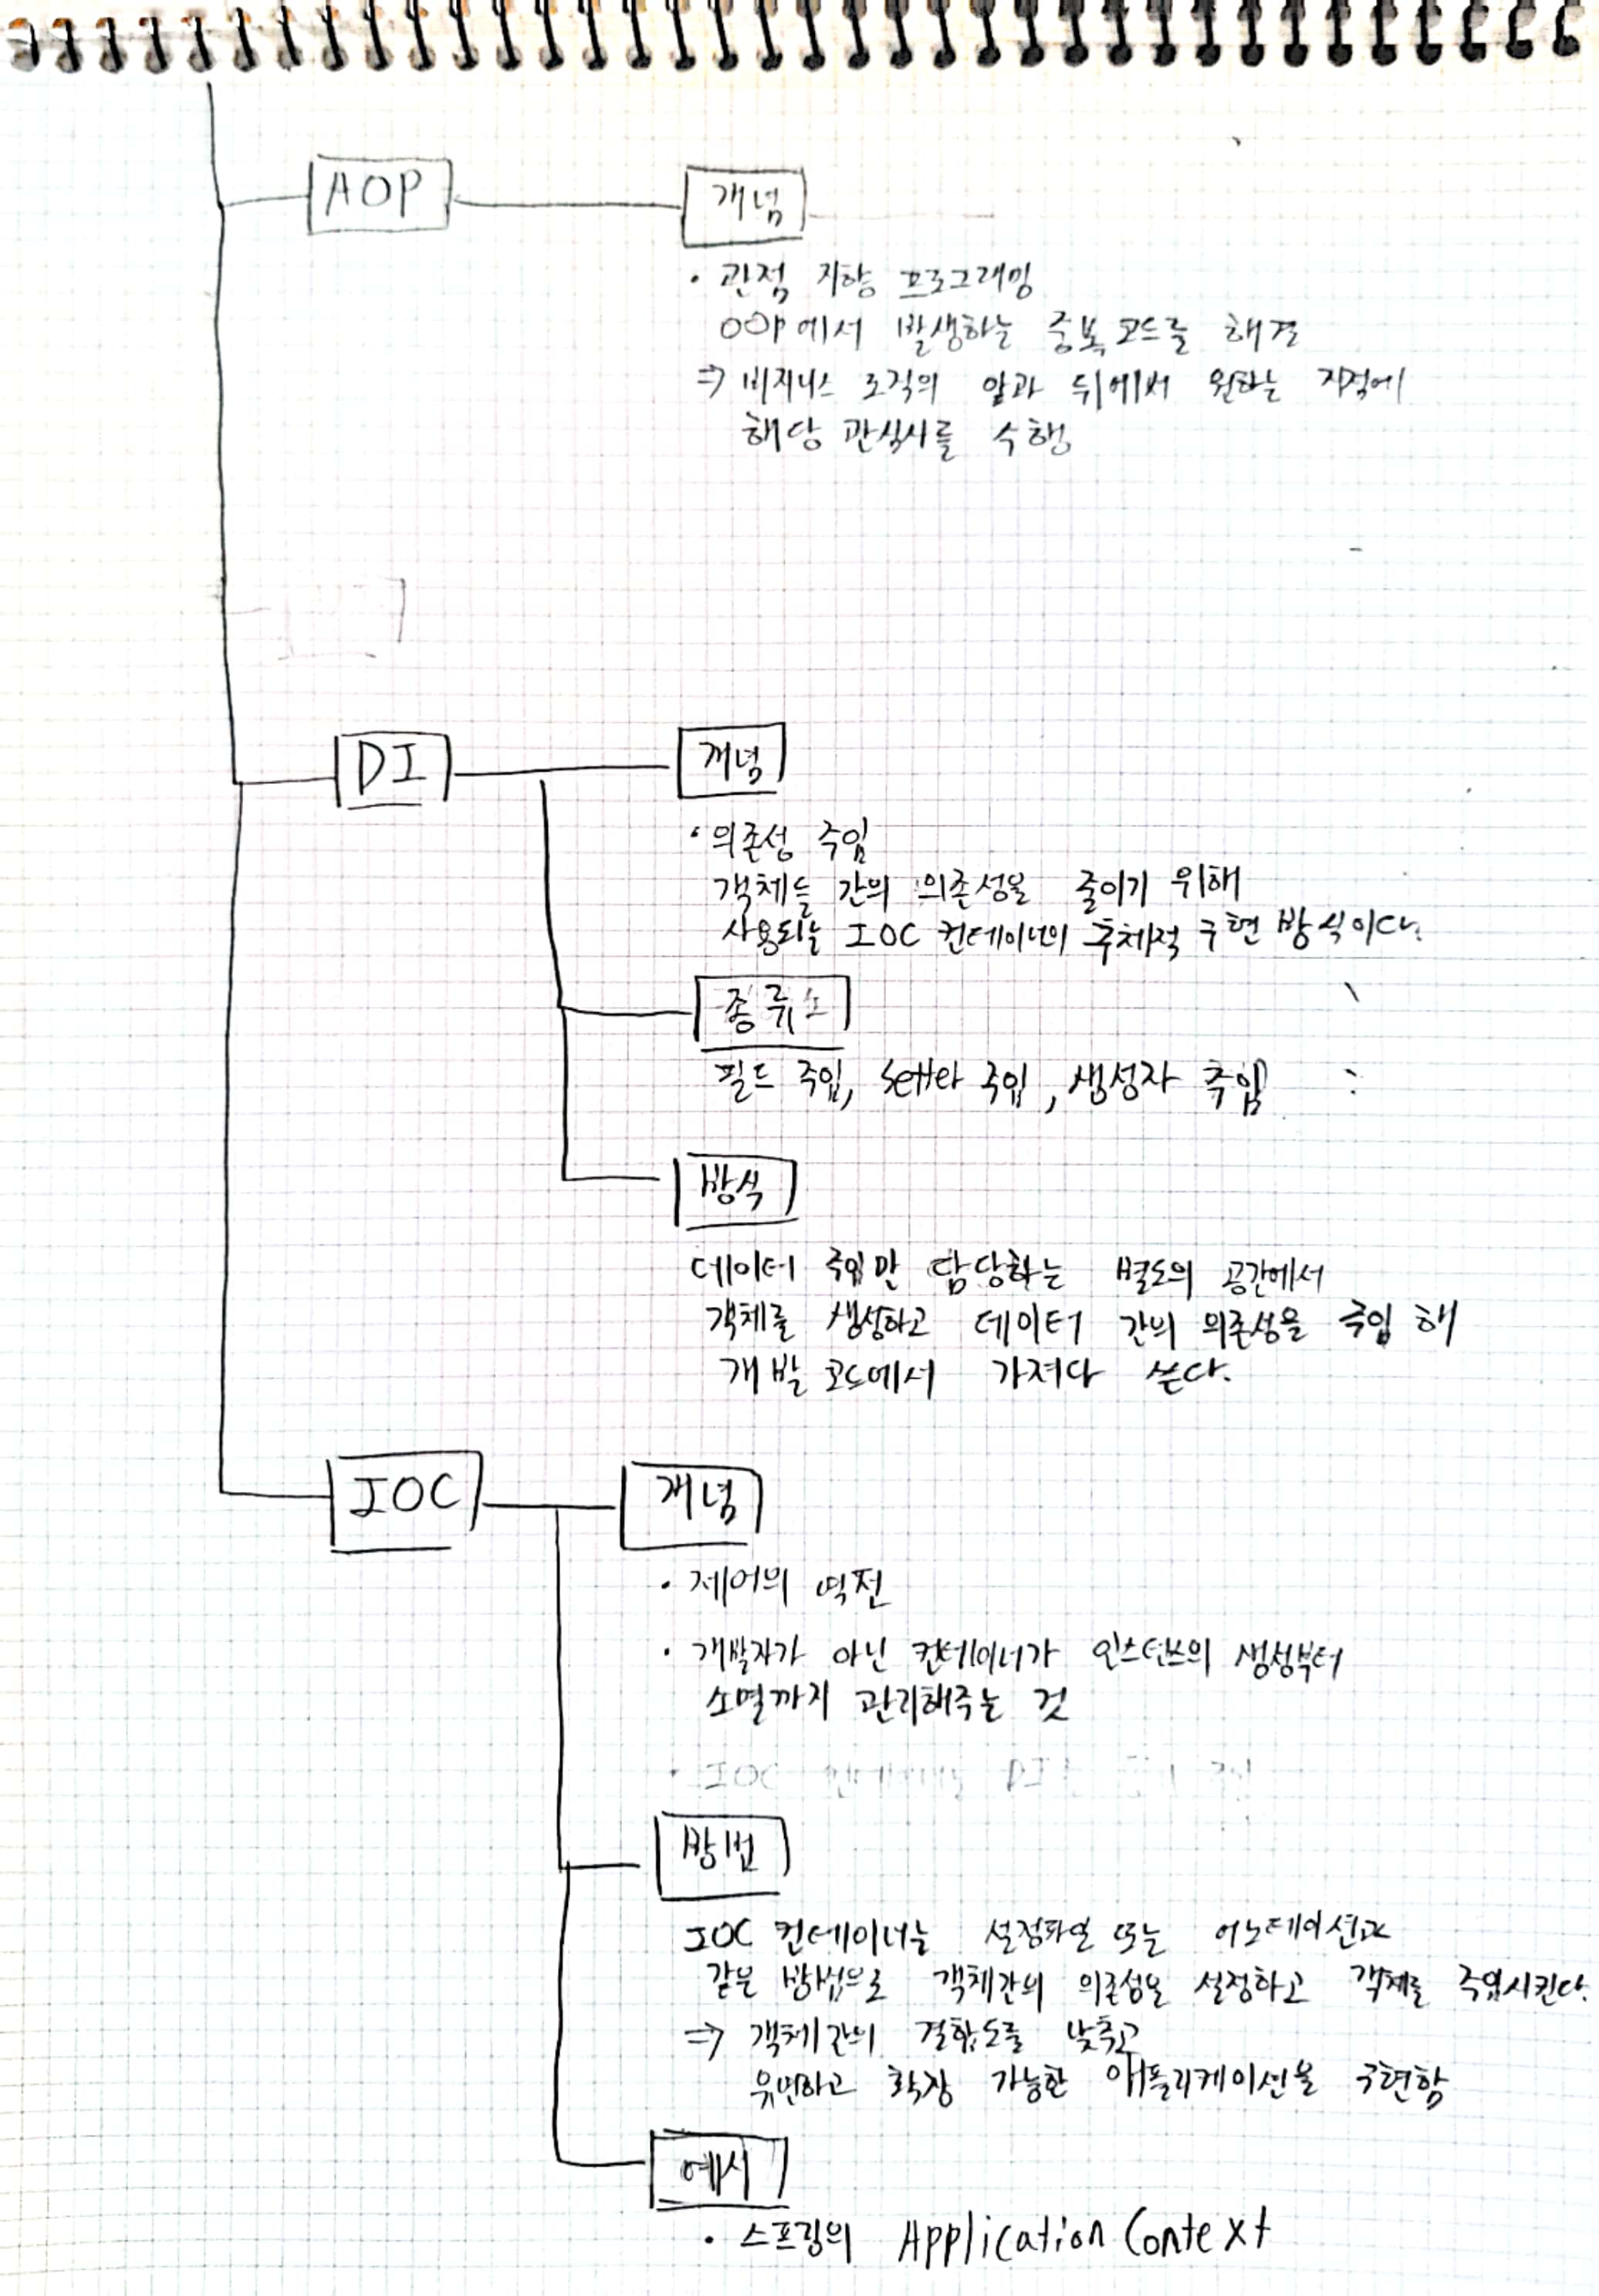 AOP
개념
• 관점 지향 프로그래밍
OOP에서 발생하는 중복 코드를 해결
⇒ 비지니스 로직의 앞과 뒤에서 원하는 지점에
해당 관심사를 수행
DI
개념
• 의존성 주입
객체들 간의 의존성을 줄이기 위해
사용되는 IOC 컨테이너의 구체적 구현 방식이다.
종류
필드 주입, setter 주입, 생성자 주입
방식
데이터 주입만 담당하는 별도의 공간에서
객체를 생성하고 데이터 간의 의존성을 주입 해
개발 코드에서 가져다 쓴다.
IOC
개념
• 제어의 역전
• 개발자가 아닌 컨테이너가 인스턴스의 생성부터
소멸까지 관리해주는 것
방법
IOC 컨테이너는 설정파일 또는 어노테이션과
같은 방법으로 객체간의 의존성을 설정하고 객체를 주입시킨다.
⇒ 객체간의 결합도를 낮추고
유연하고 확장 가능한 애플리케이션을 구현함
예시
• 스프링의 Application Context